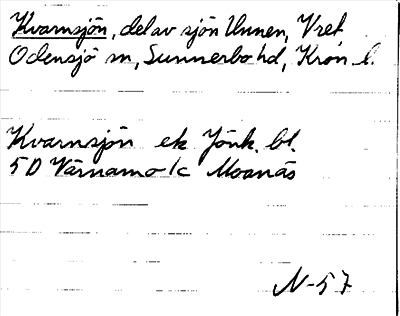 Kvarnsjön, del av sjön Unnen, Vret
Odensjö sn, Sunnerbo hd, Kron. l.
Kvarnsjön ek Jönk. bl.
5D Värnamo 1c Moanäs
N-57